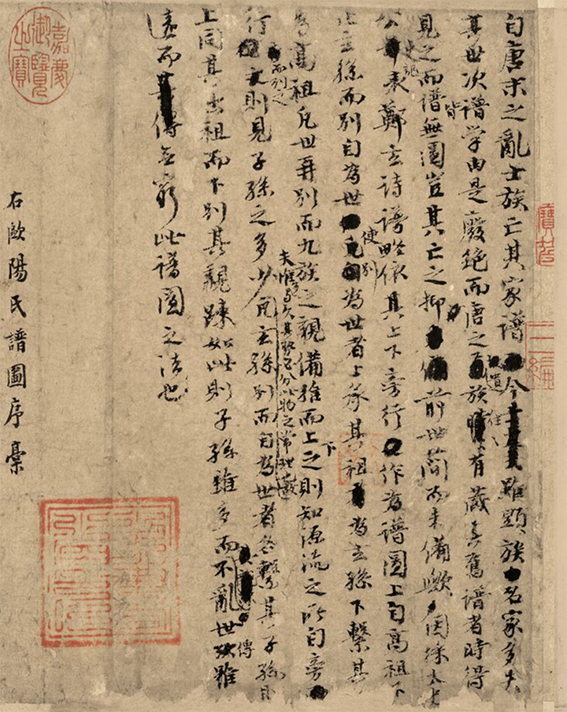 自唐末之亂士族亡其家譜今雖顯族名家多失
其世次譜学由是廢絕而唐之遺族往往有藏其舊譜者時得
見之而譜皆無圖豈其亡之抑前世簡而未備歟因採太史
公史記表鄭玄詩譜略依其上下旁行作為譜圖上自高祖下
止玄孫而別自為世使別為世者上承其祖為玄孫下繫其孫
為高祖凡世再別而九族之親備推而上下之則知源流之所自旁
行而列之則見子孫之多少夫惟多與久其勢必分此物之常理也凡玄孫別而自為世者各繫其子孫則
上同其出祖而下別其親疎如此則子孫雖多而不亂世傳雖
遠而其傳無窮此譜圖之法也
右歐陽氏譜圖序稾
嘉慶御覽之寶